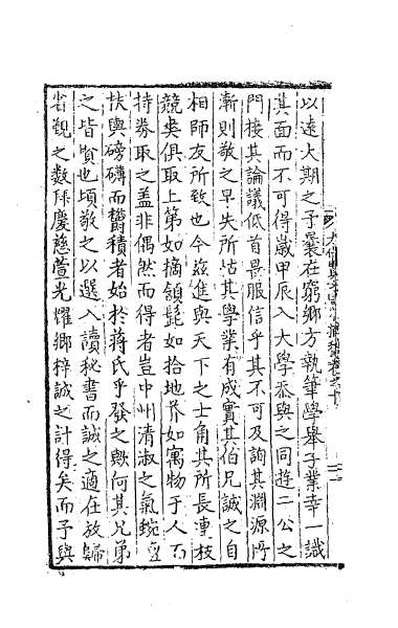 以遠大期之予曩在窮鄉方執筆學舉子業幸一識
其面而不可得歲甲辰入大學忝與之同遊二公之
門接其論議低首景服信乎其不可及詢其淵源所
漸則敬之早失所怙其學業有成實其伯兄誠之自
相師友所致也今茲進與天下之士角其所長連枝
競爽俱取上第如摘頷髭如拾地芥如寓物于人而
持券取之蓋非偶然而得者豈中州清淑之氣蜿
扶輿磅礴而鬱積者始於蔣氏乎發之歟何其兄弟
之皆賢也頃敬之以選入讀秘書而誠之適在放歸
省覲之數拜慶慈萱光耀鄉梓誠之計得矣而予與